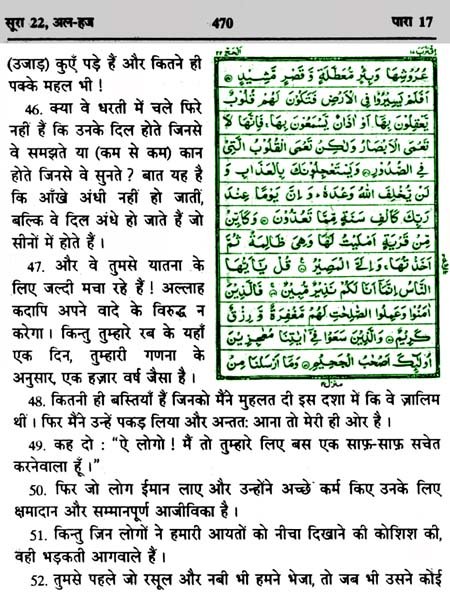 सूरा 22, अल-हज 470 पारा 17
(उजाड़) कुएँ पड़े हैं और कितने ही
पक्के महल भी !
46. क्या वे धरती में चले फिरे
नहीं हैं कि उनके दिल होते जिनसे
वे समझते या (कम से कम) कान
होते जिनसे वे सुनते ? बात यह है
कि आँखे अंधी नहीं हो जातीं,
बल्कि वे दिल अंधे हो जाते हैं जो
सीनों में होते हैं ।
47. और वे तुमसे यातना के
लिए जल्दी मचा रहे हैं ! अल्लाह
कदापि अपने वादे के विरुद्ध न
करेगा । किन्तु तुम्हारे रब के यहाँ
एक दिन, तुम्हारी गणना के
अनुसार, एक हज़ार वर्ष जैसा है ।
اقترب ١٧ ٢٢ الحج
عُرُوشِهَا وَبِئْرٍ مُّعَطَّلَةٍ وَّقَصْرٍ مَّشِيْدٍ
اَفَلَمْ يَسِيْرُوْا فِى الْاَرْضِ فَتَكُوْنَ لَهُمْ قُلُوْبٌ
يَّعْقِلُوْنَ بِهَآ اَوْ اٰذَانٌ يَّسْمَعُوْنَ بِهَا، فَاِنَّهَا لَا
تَعْمَى الْاَبْصَارُ وَلٰكِنْ تَعْمَى الْقُلُوْبُ الَّتِىْ
فِى الصُّدُوْرِ وَيَسْتَعْجِلُوْنَكَ بِالْعَذَابِ وَ
لَنْ يُّخْلِفَ اللّٰهُ وَعْدَهٗ، وَاِنَّ يَوْمًا عِنْدَ
رَبِّكَ كَاَلْفِ سَنَةٍ مِّمَّا تَعُدُّوْنَ وَكَاَيِّنْ
مِّنْ قَرْيَةٍ اَمْلَيْتُ لَهَا وَهِىَ ظَالِمَةٌ ثُمَّ
اَخَذْتُهَا، وَاِلَىَّ الْمَصِيْرُ قُلْ يٰٓاَيُّهَا
النَّاسُ اِنَّمَآ اَنَا لَكُمْ نَذِيْرٌ مُّبِيْنٌ فَالَّذِيْنَ
اٰمَنُوْا وَعَمِلُوا الصّٰلِحٰتِ لَهُمْ مَّغْفِرَةٌ وَّ رِزْقٌ
كَرِيْمٌ وَالَّذِيْنَ سَعَوْا فِىْٓ اٰيٰتِنَا مُعٰجِزِيْنَ
اُولٰٓئِكَ اَصْحٰبُ الْجَحِيْمِ وَمَآ اَرْسَلْنَا مِنْ
منزل ٤
48. कितनी ही बस्तियाँ हैं जिनको मैंने मुहलत दी इस दशा में कि वे ज़ालिम
थीं । फिर मैंने उन्हें पकड़ लिया और अन्ततः आना तो मेरी ही ओर है ।
49. कह दो : "ऐ लोगो ! मैं तो तुम्हारे लिए बस एक साफ़-साफ़ सचेत
करनेवाला हूँ ।"
50. फिर जो लोग ईमान लाए और उन्होंने अच्छे कर्म किए उनके लिए
क्षमादान और सम्मानपूर्ण आजीविका है ।
51. किन्तु जिन लोगों ने हमारी आयतों को नीचा दिखाने की कोशिश की,
वही भड़कती आगवाले हैं ।
52. तुमसे पहले जो रसूल और नबी भी हमने भेजा, तो जब भी उसने कोई